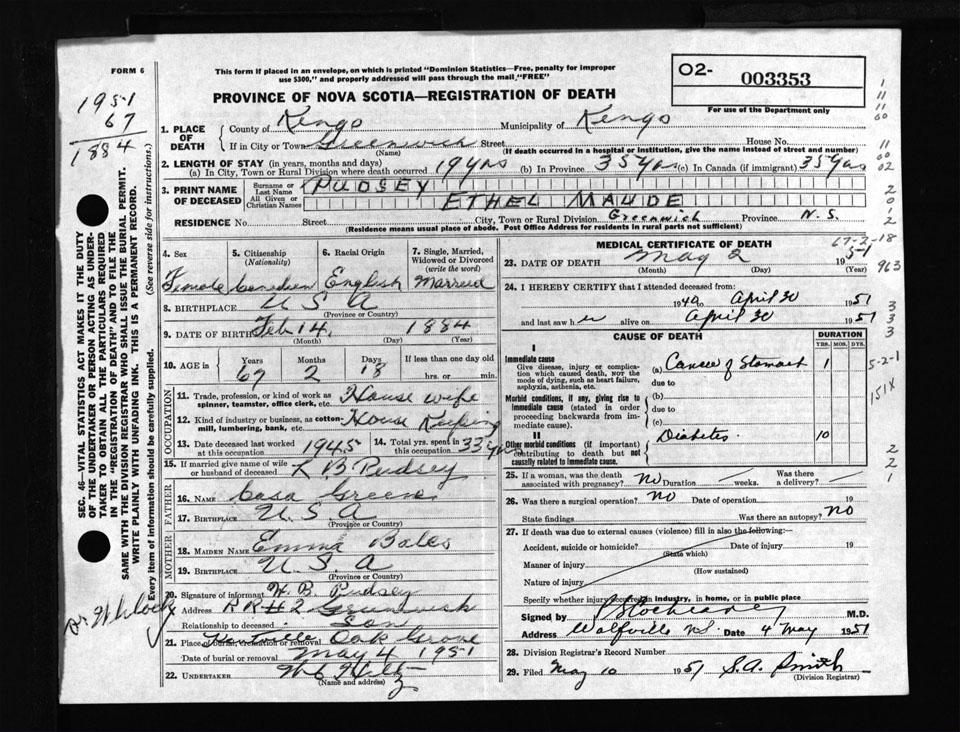 FORM 6
This form if placed in an envelope, on which is printed "Dominion Statistics—Free, penalty for improper
use $300," and properly addressed will pass through the mail, "FREE"
O2- 003353
For use of the Department only
PROVINCE OF NOVA SCOTIA—REGISTRATION OF DEATH
1951
67
1884
1. PLACE OF DEATH
County of Kings Municipality of Kings
If in City or Town Greenwich Street House No.
(Name) (If death occurred in a hospital or institution, give the name instead of street and number)
2. LENGTH OF STAY (in years, months and days)
(a) In City, Town or Rural Division where death occurred 19 yrs (b) In Province 35 yrs (c) In Canada (if immigrant) 35 yrs
3. PRINT NAME OF DECEASED
Surname or Last Name PUDSEY
All Given or Christian Names ETHEL MAUDE
RESIDENCE No. Street City, Town or Rural Division Greenwich Province N.S.
(Residence means usual place of abode. Post Office Address for residents in rural parts not sufficient)
4. Sex Female
5. Citizenship (Nationality) Canadian
6. Racial Origin English
7. Single, Married, Widowed or Divorced (write the word) Married
8. BIRTHPLACE U S A
(Province or Country)
9. DATE OF BIRTH Feb 14, 1884
(Month) (Day) (Year)
10. AGE in Years Months Days If less than one day old
67 2 18 hrs. or min.
OCCUPATION
11. Trade, profession, or kind of work as spinner, teamster, office clerk, etc. House wife
12. Kind of industry or business, as cotton-mill, lumbering, bank, etc. House Keeping
13. Date deceased last worked at this occupation 1945
14. Total yrs. spent in this occupation 33 yrs
15. If married give name of wife or husband of deceased L B Pudsey
FATHER
16. NAME Casa Greene
17. BIRTHPLACE U.S.A
(Province or Country)
MOTHER
18. MAIDEN NAME Emma Bales
19. BIRTHPLACE U.S.A
(Province or Country)
20. Signature of informant H. B. Pudsey
Address RR#2 Greenwich
Relationship to deceased Son
21. Place of burial, cremation or removal Oak Grove
Date of burial or removal May 4 1951
22. UNDERTAKER
(Name and address)
MEDICAL CERTIFICATE OF DEATH
67-2-18
23. DATE OF DEATH May 2 1951
(Month) (Day) (Year)
24. I HEREBY CERTIFY that I attended deceased from:
1940 to April 30 1951
and last saw her alive on April 30 1951
CAUSE OF DEATH
DURATION
YRS. MOS. DYS.
I
Immediate cause
Give disease, injury or complication which caused death, NOT the mode of dying, such as heart failure, asphyxia, asthenia, etc.
(a) Cancer of Stomach 1
due to
Morbid conditions, if any, giving rise to immediate cause (stated in order proceeding backwards from immediate cause).
(b)
due to
(c)
II
Other morbid conditions (if important) contributing to death but not causally related to immediate cause.
Diabetes. 10
25. If a woman, was the death associated with pregnancy? No Duration weeks. Was there a delivery?
26. Was there a surgical operation? No Date of operation 19
State findings Was there an autopsy? No
27. If death was due to external causes (violence) fill in also the following:—
Accident, suicide or homicide? Date of injury 19
(State which)
Manner of injury
(How sustained)
Nature of injury
Specify whether injury occurred in industry, in home, or in public place
Signed by M.D.
Address Wolfville N.S. Date 4 May 1951
28. Division Registrar's Record Number
29. Filed May 10 1951 S.A. Smith
(Division Registrar)
SEC. 46—VITAL STATISTICS ACT MAKES IT THE DUTY
OF THE UNDERTAKER OR PERSON ACTING AS UNDERTAKER TO OBTAIN ALL THE PARTICULARS REQUIRED
IN THE "REGISTRATION OF DEATH" AND TO FILE THE
SAME WITH THE DIVISION REGISTRAR WHO SHALL ISSUE THE BURIAL PERMIT.
WRITE PLAINLY WITH UNFADING INK. THIS IS A PERMANENT RECORD.
Every item of information should be carefully supplied. (See reverse side for instructions.)
963
5-2-1
151X